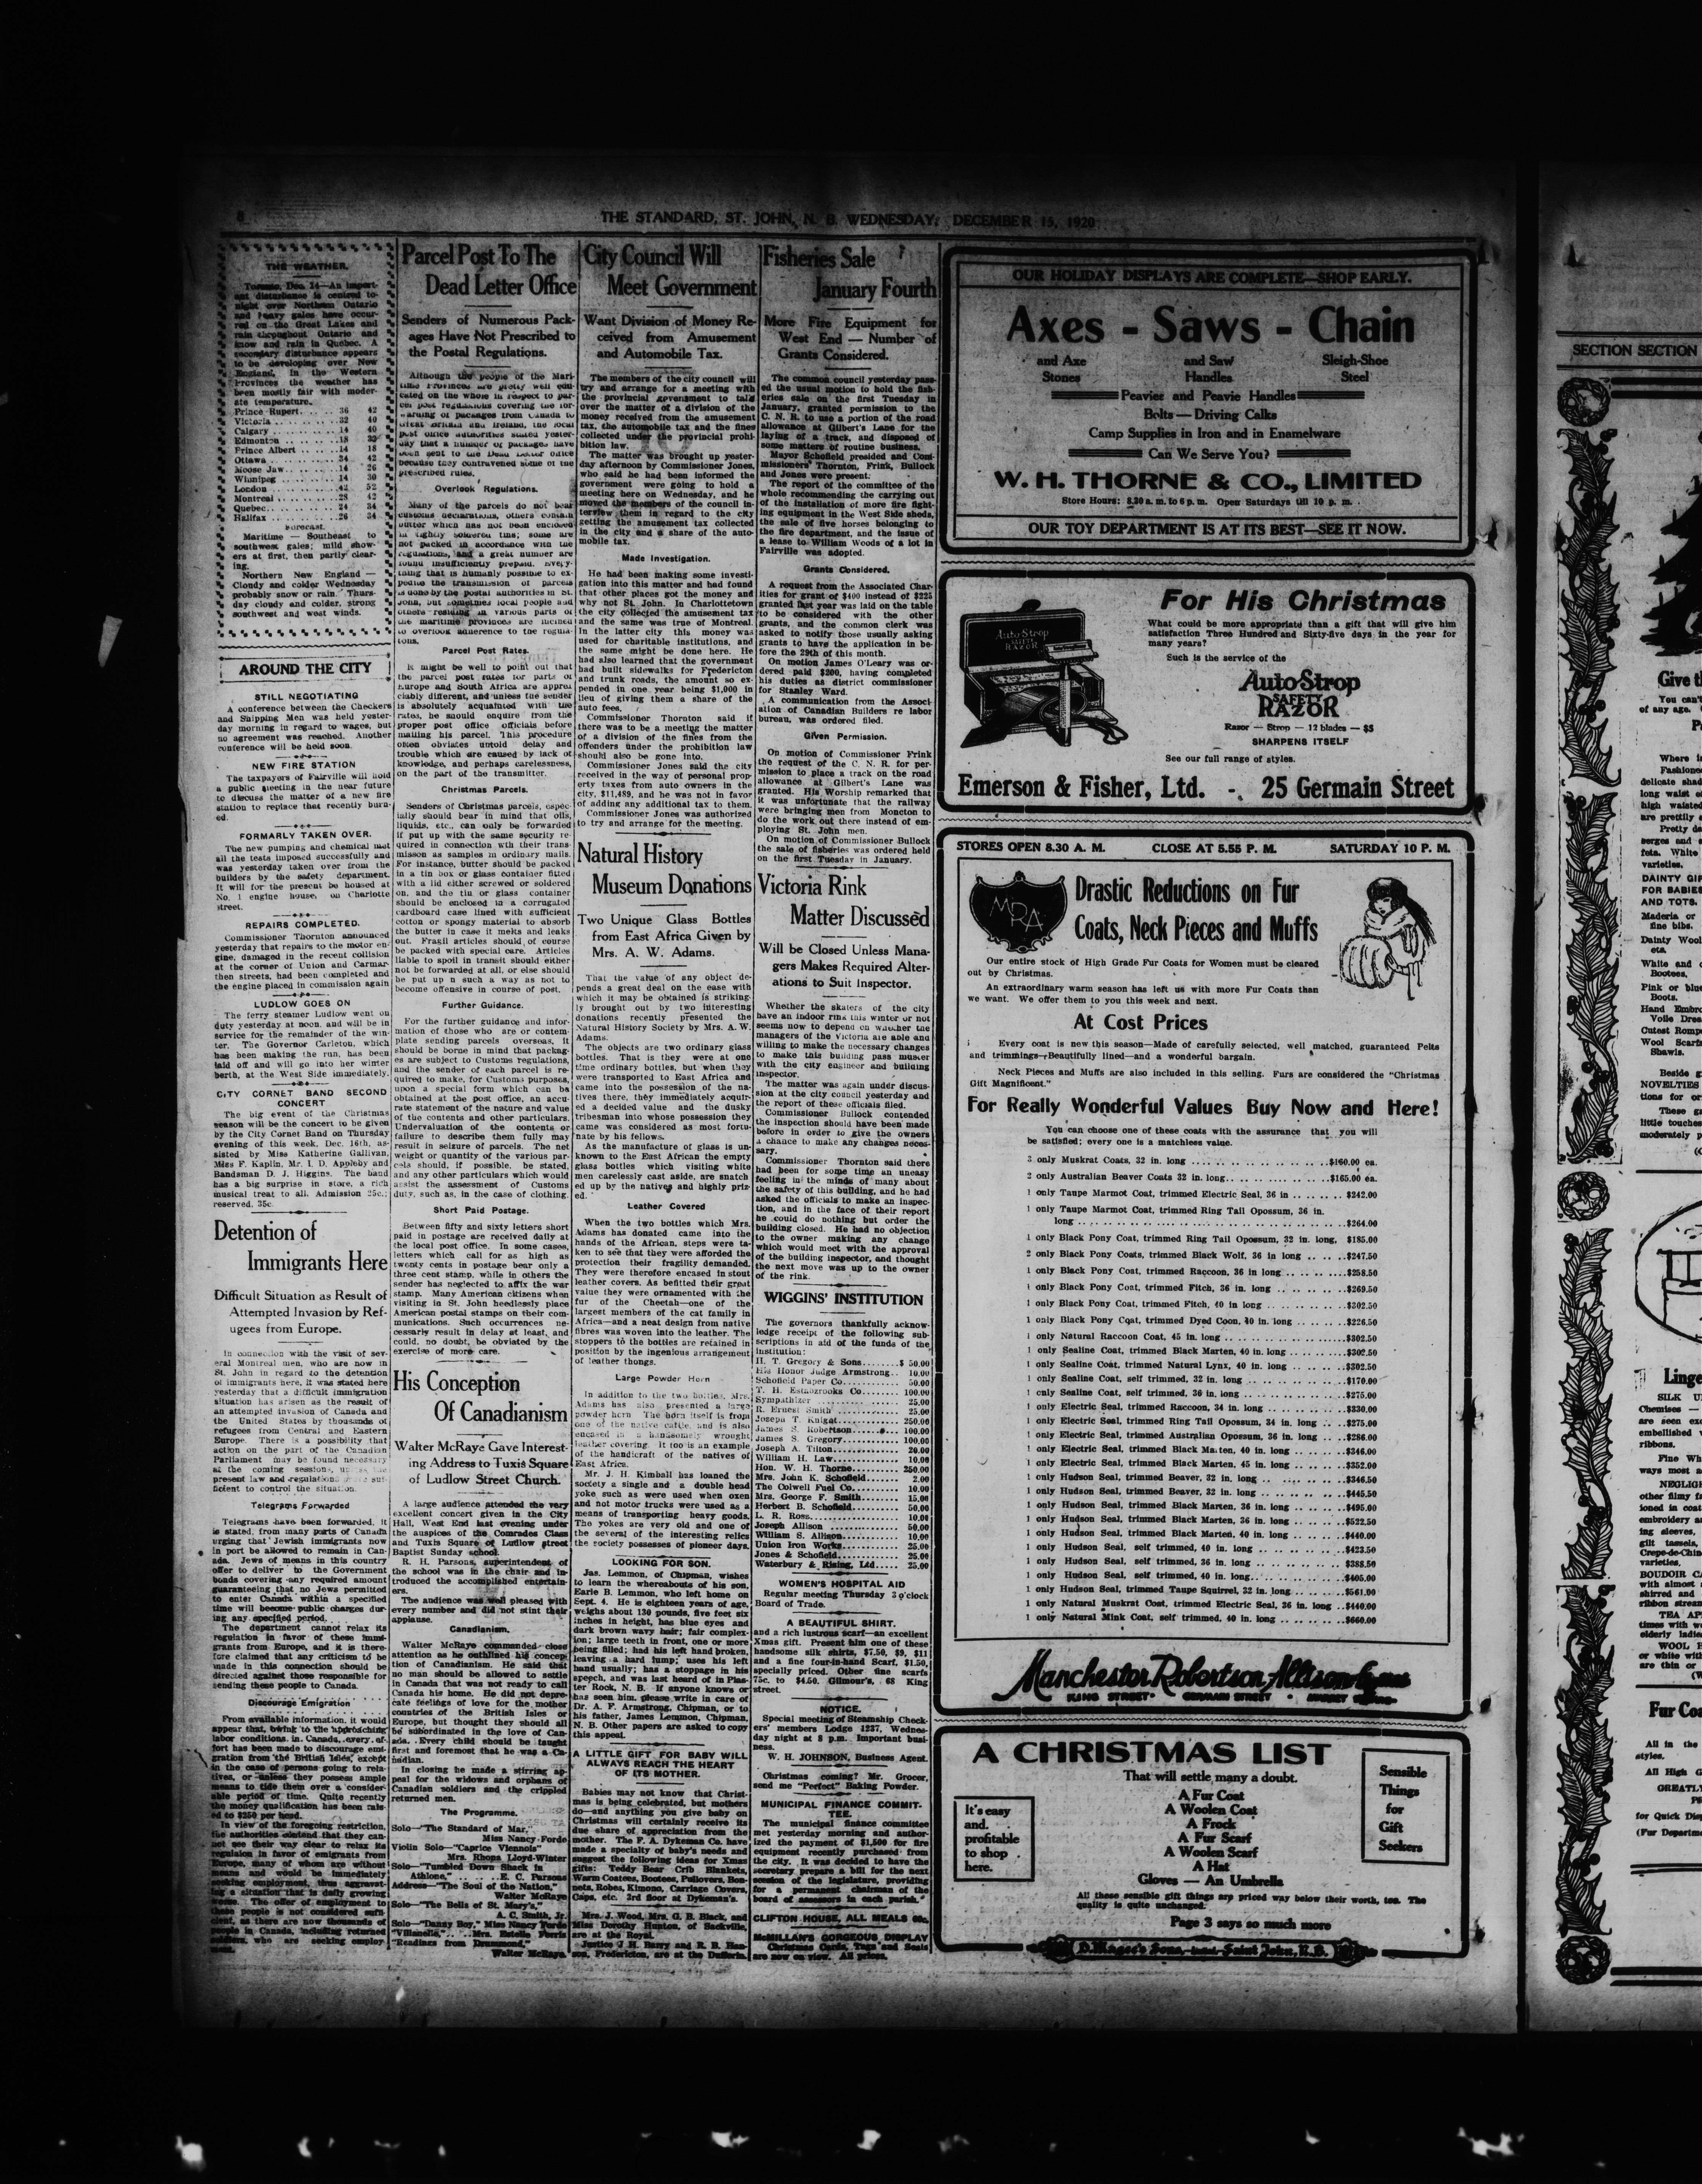 8
THE STANDARD, ST. JOHN, N. B. WEDNESDAY, DECEMBER 15, 1920
THE WEATHER.
Toronto, Dec. 14—An import-
ant disturbance is centred to-
night over Northern Ontario
and heavy gales have occur-
red on the Great Lakes and
rain throughout Ontario and
snow and rain in Quebec. A
secondary disturbance appears
to be developing over New
England. In the Western
Provinces the weather has
been mostly fair with moder-
ate temperature.
Prince Rupert. . . . . 36 42
Victoria . . . . . . . 32 40
Calgary . . . . . . . 14 40
Edmonton . . . . . . 18 32
Prince Albert . . . . 14 18
Ottawa . . . . . . . . 34 42
Moose Jaw. . . . . . 14 26
Winnipeg . . . . . . 14 30
London . . . . . . . . 42 52
Montreal . . . . . . . 28 42
Quebec. . . . . . . . 24 34
Halifax . . . . . . . . 26 34
Forecast.
Maritime — Southeast to
southwest gales; mild show-
ers at first, then partly clear-
ing.
Northern New England —
Cloudy and colder Wednesday
probably snow or rain. Thurs-
day cloudy and colder, strong
southwest and west winds.
AROUND THE CITY
STILL NEGOTIATING
A conference between the Checkers
and Shipping Men was held yester-
day morning in regard to wages, but
no agreement was reached. Another
conference will be held soon.
NEW FIRE STATION
The taxpayers of Fairville will hold
a public meeting in the near future
to discuss the matter of a new fire
station to replace that recently burn-
ed.
FORMARLY TAKEN OVER.
The new pumping and chemical met
all the tests imposed successfully and
was yesterday taken over from the
builders by the safety department.
It will for the present be housed at
No. 1 engine house, on Charlotte
street.
REPAIRS COMPLETED.
Commissioner Thornton announced
yesterday that repairs to the motor en-
gine, damaged in the recent collision
at the corner of Union and Carmar-
then streets, had been completed and
the engine placed in commission again
LUDLOW GOES ON
The ferry steamer Ludlow went on
duty yesterday at noon, and will be in
service for the remainder of the win-
ter. The Governor Carleton, which
has been making the run, has been
laid off and will go into her winter
berth, at the West Side immediately.
CITY CORNET BAND SECOND
CONCERT
The big event of the Christmas
season will be the concert to be given
by the City Cornet Band on Thursday
evening of this week, Dec. 16th, as-
sisted by Miss Katherine Gallivan,
Miss F. Kaplin, Mr. I. D. Appleby and
Bandsman D. J. Higgins. The band
has a big surprise in store, a rich
musical treat to all. Admission 25c.;
reserved, 35c.
Detention of
Immigrants Here
Difficult Situation as Result of
Attempted Invasion by Ref-
ugees from Europe.
In connection with the visit of sev-
eral Montreal men, who are now in
St. John in regard to the detention
of immigrants here, it was stated here
yesterday that a difficult immigration
situation has arisen as the result of
an attempted invasion of Canada and
the United States by thousands of
refugees from Central and Eastern
Europe. There is a possibility that
action on the part of the Canadian
Parliament may be found necessary
at the coming sessions, unless the
present law and regulations are suf-
ficient to control the situation.
Telegrams Forwarded
Telegrams have been forwarded, it
is stated, from many parts of Canada
urging that Jewish immigrants now
in port be allowed to remain in Can-
ada. Jews of means in this country
offer to deliver to the Government
bonds covering any required amount
guaranteeing that no Jews permitted
to enter Canada within a specified
time will become public charges dur-
ing any specified period.
The department cannot relax its
regulation in favor of these immi-
grants from Europe, and it is there-
fore claimed that any criticism to be
made in this connection should be
directed against those responsible for
sending these people to Canada.
Discourage Emigration
From available information, it would
appear that, owing to the approaching
labor conditions in Canada, every ef-
fort has been made to discourage emi-
gration from the British Isles, except
in the case of persons going to rela-
tives, or unless they possess ample
means to tide them over a consider-
able period of time. Quite recently
the money qualification has been rais-
ed to $250 per head.
In view of the foregoing restriction,
the authorities contend that they can-
not see their way clear to relax its
regulation in favor of emigrants from
Europe, many of whom are without
means and would be immediately
seeking employment, thus aggravat-
ing a situation that is daily growing
worse. The offer of employment to
these people is not considered suffi-
cient, as there are now thousands of
people in Canada, including returned
soldiers, who are seeking employ-
ment.
Parcel Post To The
Dead Letter Office
Senders of Numerous Pack-
ages Have Not Prescribed to
the Postal Regulations.
Although the people of the Mari-
time Provinces are pretty well edu-
cated on the whole in respect to par-
cel post regulations covering the for-
warding of packages from Canada to
Great Britain and Ireland, the local
post office authorities stated yester-
day that a number of packages have
been sent to the Dead Letter office
because they contravened some of the
prescribed rules.
Overlook Regulations.
Many of the parcels do not bear
customs declarations, others contain
butter which has not been enclosed
in tightly soldered tins; some are
not packed in accordance with the
regulations, and a great number are
found insufficiently prepaid. Every-
thing that is humanly possible to ex-
pedite the transmission of parcels
is done by the postal authorities in St.
John, but sometimes local people and
others residing in various parts of
the maritime provinces are inclined
to overlook adherence to the regula-
tions.
Parcel Post Rates.
It might be well to point out that
the parcel post rates for parts of
Europe and South Africa are appre-
ciably different, and unless the sender
is absolutely acquainted with the
rates, he should enquire from the
proper post office officials before
mailing his parcel. This procedure
often obviates untold delay and
trouble which are caused by lack of
knowledge, and perhaps carelessness,
on the part of the transmitter.
Christmas Parcels.
Senders of Christmas parcels, espec-
ially should bear in mind that oils,
liquids, etc., can only be forwarded
if put up with the same security re-
quired in connection wth their trans-
misson as samples in ordinary mails.
For instance, butter should be packed
in a tin box or glass container fitted
with a lid either screwed or soldered
on, and the tin or glass container
should be enclosed in a corrugated
cardboard case lined with sufficient
cotton or spongy material to absorb
the butter in case it meks and leaks
out. Fragil articles should of course
be packed with special care. Articles
liable to spoil in transit should either
not be forwarded at all, or else should
be put up n such a way as not to
become offensive in course of post.
Further Guidance.
For the further guidance and infor-
mation of those who are or contem-
plate sending parcels overseas, it
should be borne in mind that packag-
es are subject to Customs regulations,
and the sender of each parcel is re-
quired to make, for Customs purposes,
upon a special form which can be
obtained at the post office, an accu-
rate statement of the nature and value
of the contents and other particulars.
Undervaluation of the contents or
failure to describe them fully may
result in seizure of parcels. The net
weight or quantity of the various par-
cels should, if possible, be stated,
and any other particulars which would
assist the assessment of Customs
duty, such as, in the case of clothing.
Short Paid Postage.
Between fifty and sixty letters short
paid in postage are received daily at
the local post office. In some cases,
letters which call for as high as
twenty cents in postage bear only a
three cent stamp, while in others the
sender has neglected to affix the war
stamp. Many American citizens when
visiting in St. John heedlessly place
American postal stamps on their com-
munications. Such occurrences ne-
cessarily result in delay at least, and
could, no doubt, be obviated by the
exercise of more care.
His Conception
Of Canadianism
Walter McRaye Gave Interest-
ing Address to Tuxis Square
of Ludlow Street Church.
A large audience attended the very
excellent concert given in the City
Hall, West End last evening under
the auspices of the Comrades Class
and Tuxis Square of Ludlow street
Baptist Sunday school.
R. H. Parsons, superintendent of
the school was in the chair and in-
troduced the accomplished entertain-
ers.
The audience was well pleased with
every number and did not stint their
applause.
Canadianism.
Walter McRaye commanded close
attention as he outlined his concep-
tion of Canadianism. He said that
no man should be allowed to settle
in Canada that was not ready to call
Canada his home. He did not depre-
cate feelings of love for the mother
countries of the British Isles or
Europe, but thought they should all
be subordinated in the love of Can-
ada. Every child should be taught
first and foremost that he was a Ca-
nadian.
In closing he made a stirring ap-
peal for the widows and orphans of
Canadian soldiers and the crippled
returned men.
The Programme.
Solo—"The Standard of Mar,"
Miss Nancy Forde
Violin Solo—"Caprice Viennois"
Mrs. Rhona Lloyd-Winter
Solo—"Tumbled Down Shack in
Athlone," . . . . . . E. C. Parsons
Address—"The Soul of the Nation,"
Walter McRaye
Solo—"The Bells of St. Mary's,"
A. C. Smith, Jr.
Solo—"Danny Boy," Miss Nancy Forde
"Villanelle," . . . . Mrs. Estelle Ferris
"Readings from Drummond,"
Walter McRaye
City Council Will
Meet Government
Want Division of Money Re-
ceived from Amusement
and Automobile Tax.
The members of the city council will
try and arrange for a meeting with
the provincial government to talk
over the matter of a division of the
money received from the amusement
tax, the automobile tax and the fines
collected under the provincial prohi-
bition law.
The matter was brought up yester-
day afternoon by Commissioner Jones,
who said he had been informed the
government were going to hold a
meeting here on Wednesday, and he
moved the members of the council in-
terview them in regard to the city
getting the amusement tax collected
in the city and a share of the auto-
mobile tax.
Made Investigation.
He had been making some investi-
gation into this matter and had found
that other places got the money and
why not St. John. In Charlottetown
the city collected the amusement tax
and the same was true of Montreal.
In the latter city this money was
used for charitable institutions, and
the same might be done here. He
had also learned that the government
had built sidewalks for Fredericton
and trunk roads, the amount so ex-
pended in one year being $1,000 in
lieu of giving them a share of the
auto fees.
Commissioner Thornton said if
there was to be a meeting the matter
of a division of the fines from the
offenders under the prohibition law
should also be gone into.
Commissioner Jones said the city
received in the way of personal prop-
erty taxes from auto owners in the
city, $11,489, and he was not in favor
of adding any additional tax to them.
Commissioner Jones was authorized
to try and arrange for the meeting.
Natural History
Museum Donations
Two Unique Glass Bottles
from East Africa Given by
Mrs. A. W. Adams.
That the value of any object de-
pends a great deal on the ease with
which it may be obtained is striking-
ly brought out by two interesting
donations recently presented the
Natural History Society by Mrs. A. W.
Adams.
The objects are two ordinary glass
bottles. That is they were at one
time ordinary bottles, but when they
were transported to East Africa and
came into the possession of the na-
tives there, they immediately acquir-
ed a decided value and the dusky
tribesman into whose possession they
came was considered as most fortu-
nate by his fellows.
As the manufacture of glass is un-
known to the East African the empty
glass bottles which visiting white
men carelessly cast aside, are snatch
ed up by the natives and highly priz-
ed.
Leather Covered
When the two bottles which Mrs.
Adams has donated came into the
hands of the African, steps were ta-
ken to see that they were afforded the
protection their fragility demanded.
They were therefore encased in stout
leather covers. As befitted their great
value they were ornamented with the
fur of the Cheetah—one of the
largest members of the cat family in
Africa—and a neat design from native
fibres was woven into the leather. The
stoppers to the bottles are retained in
position by the ingenious arrangement
of leather thongs.
Large Powder Horn
In addition to the two bottles, Mrs.
Adams has also presented a large
powder horn The horn itself is from
one of the native cattle, and is also
encased in a handsomely wrought
leather covering. It too is an example
of the handicraft of the natives of
East Africa.
Mr. J. H. Kimball has loaned the
society a single and a double head
yoke such as were used when oxen
and not motor trucks were used as a
means of transporting heavy goods.
The yokes are very old and one of
the several of the interesting relics
the society possesses of pioneer days.
LOOKING FOR SON.
Jas. Lemmon, of Chipman, wishes
to learn the whereabouts of his son,
Earle B. Lemmon, who left home on
Sept. 4. He is eighteen years of age,
weighs about 130 pounds, five feet six
inches in height, has blue eyes and
dark brown wavy hair; fair complex-
ion; large teeth in front, one or more
being filled; had his left hand broken,
leaving a hard lump; uses his left
hand usually; has a stoppage in his
speech, and was last heard of in Plas-
ter Rock, N. B. If anyone knows or
has seen him, please write in care of
Dr. A. F. Armstrong, Chipman, or to
his father, James Lemmon, Chipman,
N. B. Other papers are asked to copy
this appeal.
A LITTLE GIFT FOR BABY WILL
ALWAYS REACH THE HEART
OF ITS MOTHER.
Babies may not know that Christ-
mas is being celebrated, but mothers
do—and anything you give baby on
Christmas will certainly receive its
due share of appreciation from the
mother. The F. A. Dykeman Co. have
made a specialty of baby's needs and
suggest the following ideas for Xmas
gifts: Teddy Bear Crib Blankets,
Warm Coatees, Bootees, Pullovers, Bon-
nets, Robes, Kimono, Carriage Covers,
Caps, etc. 3rd floor at Dykeman's.
Mrs. J. Wood, Mrs. G. B. Black, and
Miss Dorothy Hunton, of Sackville,
are at the Royal.
Justice J. H. Barry and R. B. Han-
son, Fredericton, are at the Dufferin.
Fisheries Sale
January Fourth
More Fire Equipment for
West End — Number of
Grants Considered.
The common council yesterday pass-
ed the usual motion to hold the fish-
eries sale on the first Tuesday in
January, granted permission to the
C. N. R. to use a portion of the road
allowance at Gilbert's Lane for the
laying of a track, and disposed of
some matters of routine business.
Mayor Schofield presided and Com-
missioners Thornton, Frink, Bullock
and Jones were present.
The report of the committee of the
whole recommending the carrying out
of the installation of more fire fight-
ing equipment in the West Side sheds,
the sale of five horses belonging to
the fire department, and the issue of
a lease to William Woods of a lot in
Fairville was adopted.
Grants Considered.
A request from the Associated Char-
ities for grant of $400 instead of $225
granted last year was laid on the table
to be considered with the other
grants, and the common clerk was
asked to notify those usually asking
grants to have the application in be-
fore the 29th of this month.
On motion James O'Leary was or-
dered paid $200, having completed
his duties as district commissioner
for Stanley Ward.
A communication from the Associ-
ation of Canadian Builders re labor
bureau, was ordered filed.
Given Permission.
On motion of Commissioner Frink
the request of the C. N. R. for per-
mission to place a track on the road
allowance at Gilbert's Lane was
granted. His Worship remarked that
it was unfortunate that the railway
were bringing men from Moncton to
do the work out there instead of em-
ploying St. John men.
On motion of Commissioner Bullock
the sale of fisheries was ordered held
on the first Tuesday in January.
Victoria Rink
Matter Discussed
Will be Closed Unless Mana-
gers Makes Required Alter-
ations to Suit Inspector.
Whether the skaters of the city
have an indoor rink this winter or not
seems now to depend on whether the
managers of the Victoria are able and
willing to make the necessary changes
to make this building pass muster
with the city engineer and building
inspector.
The matter was again under discus-
sion at the city council yesterday and
the report of these officials filed.
Commissioner Bullock contended
the inspection should have been made
before in order to give the owners
a chance to make any changes neces-
sary.
Commissioner Thornton said there
had been for some time an uneasy
feeling in the minds of many about
the safety of this building, and he had
asked the officials to make an inspec-
tion, and in the face of their report
he could do nothing but order the
building closed. He had no objection
to the owner making any change
which would meet with the approval
of the building inspector, and thought
the next move was up to the owner
of the rink.
WIGGINS' INSTITUTION
The governors thankfully acknow-
ledge receipt of the following sub-
scriptions in aid of the funds of the
Institution:
H. T. Gregory & Sons.......$ 50.00
His Honor Judge Armstrong.. 10.00
Schofield Paper Co.......... 50.00
T. H. Estabrooks Co........ 100.00
Sympathizer ............... 25.00
R. Ernest Smith ........... 25.00
Joseph T. Knight........... 250.00
James S. Robertson......... 100.00
James S. Gregory........... 100.00
Joseph A. Tilton........... 20.00
William H. Law............ 10.00
Hon. W. H. Thorne......... 250.00
Mrs. John K. Schofield..... 2.00
The Colwell Fuel Co........ 10.00
Mrs. George F. Smith....... 15.00
Herbert B. Schofield....... 50.00
L. R. Ross................ 10.00
Joseph Allison ............ 50.00
William S. Allison......... 10.00
Union Iron Works.......... 25.00
Jones & Schofield.......... 25.00
Waterbury & Rising, Ltd... 25.00
WOMEN'S HOSPITAL AID
Regular meeting Thursday 3 o'clock
Board of Trade.
A BEAUTIFUL SHIRT.
and a rich lustrous scarf—an excellent
Xmas gift. Present him one of these
handsome silk shirts, $7.50, $9, $11
and a fine four-in-hand Scarf, $1.50,
specially priced. Other fine scarfs
75c. to $4.50. Gilmour's, 68 King
street.
NOTICE.
Special meeting of Steamship Check-
ers' members Lodge 1237, Wednes-
day night at 8 p.m. Important busi-
ness.
W. H. JOHNSON, Business Agent.
Christmas coming? Mr. Grocer,
send me "Perfect" Baking Powder.
MUNICIPAL FINANCE COMMIT-
TEE.
The municipal finance committee
met yesterday morning and author-
ized the payment of $1,500 for fire
equipment recently purchased from
the city. It was decided to have the
secretary prepare a bill for the next
session of the legislature, providing
for a permanent chairman of the
board of assessors in each parish.
CLIFTON HOUSE, ALL MEALS 60c.
McMILLAN'S GORGEOUS DISPLAY
Christmas Cards, Tags and Seals
are now on view. All prices.
OUR HOLIDAY DISPLAYS ARE COMPLETE—SHOP EARLY.
Axes - Saws - Chain
and Axe and Saw Sleigh-Shoe
Stones Handles Steel
Peavies and Peavie Handles
Bolts — Driving Calks
Camp Supplies in Iron and in Enamelware
Can We Serve You?
W. H. THORNE & CO., LIMITED
Store Hours: 8.30 a. m. to 6 p. m. Open Saturdays till 10 p. m.
OUR TOY DEPARTMENT IS AT ITS BEST—SEE IT NOW.
For His Christmas
What could be more appropriate than a gift that will give him
satisfaction Three Hundred and Sixty-five days in the year for
many years?
Such is the service of the
Auto-Strop
SAFETY
RAZOR
Razor — Strop — 12 blades — $5
SHARPENS ITSELF
See our full range of styles.
Emerson & Fisher, Ltd. - 25 Germain Street
STORES OPEN 8.30 A. M. CLOSE AT 5.55 P. M. SATURDAY 10 P. M.
MRA
Drastic Reductions on Fur
Coats, Neck Pieces and Muffs
Our entire stock of High Grade Fur Coats for Women must be cleared
out by Christmas.
An extraordinary warm season has left us with more Fur Coats than
we want. We offer them to you this week and next.
At Cost Prices
Every coat is new this season—Made of carefully selected, well matched, guaranteed Pelts
and trimmings—Beautifully lined—and a wonderful bargain.
Neck Pieces and Muffs are also included in this selling. Furs are considered the "Christmas
Gift Magnificent."
For Really Wonderful Values Buy Now and Here!
You can choose one of these coats with the assurance that you will
be satisfied; every one is a matchless value.
3 only Muskrat Coats, 32 in. long .. .. .. .. $160.00 ea.
2 only Australian Beaver Coats 32 in. long.. .. .. $165.00 ea.
1 only Taupe Marmot Coat, trimmed Electric Seal, 36 in .. .. $242.00
1 only Taupe Marmot Coat, trimmed Ring Tail Opossum, 36 in.
long .. .. .. .. $264.00
1 only Black Pony Coat, trimmed Ring Tail Opossum, 32 in. long, $185.00
2 only Black Pony Coats, trimmed Black Wolf, 36 in long .. .. $247.50
1 only Black Pony Coat, trimmed Raccoon, 36 in long .. .. $258.50
1 only Black Pony Coat, trimmed Fitch, 36 in long .. .. $269.50
1 only Black Pony Coat, trimmed Fitch, 40 in long .. .. $302.50
1 only Black Pony Coat, trimmed Dyed Coon, 40 in. long .. .. $226.50
1 only Natural Raccoon Coat, 45 in. long .. .. $302.50
1 only Sealine Coat, trimmed Black Marten, 40 in. long .. .. $302.50
1 only Sealine Coat, trimmed Natural Lynx, 40 in. long .. .. $302.50
1 only Sealine Coat, self trimmed, 32 in. long .. .. $170.00
1 only Sealine Coat, self trimmed, 36 in. long .. .. $275.00
1 only Electric Seal, trimmed Raccoon, 34 in. long .. .. $330.00
1 only Electric Seal, trimmed Ring Tail Opossum, 34 in. long .. $275.00
1 only Electric Seal, trimmed Australian Opossum, 36 in. long .. $286.00
1 only Electric Seal, trimmed Black Marten, 40 in. long .. .. $346.00
1 only Electric Seal, trimmed Black Marten, 45 in. long .. .. $352.00
1 only Hudson Seal, trimmed Beaver, 32 in. long .. .. $346.50
1 only Hudson Seal, trimmed Beaver, 32 in. long .. .. $445.50
1 only Hudson Seal, trimmed Black Marten, 36 in. long .. .. $495.00
1 only Hudson Seal, trimmed Black Marten, 36 in. long .. .. $522.50
1 only Hudson Seal, trimmed Black Marten, 40 in. long .. .. $440.00
1 only Hudson Seal, self trimmed, 40 in. long .. .. $423.50
1 only Hudson Seal, self trimmed, 36 in. long .. .. $388.50
1 only Hudson Seal, self trimmed, 40 in. long.. .. $405.00
1 only Hudson Seal, trimmed Taupe Squirrel, 32 in. long .. .. $561.00
1 only Natural Muskrat Coat, trimmed Electric Seal, 36 in. long .. $440.00
1 only Natural Mink Coat, self trimmed, 40 in. long .. .. $660.00
Manchester Robertson Allison Limited
KING STREET • GERMAIN STREET • MARKET SQUARE
A CHRISTMAS LIST
That will settle many a doubt.
It's easy
and
profitable
to shop
here.
A Fur Coat
A Woolen Coat
A Frock
A Fur Scarf
A Woolen Scarf
A Hat
Gloves — An Umbrella
Sensible
Things
for
Gift
Seekers
All these sensible gift things are priced way below their worth, too. The
quality is quite unchanged.
Page 3 says so much more
D. Magee's Sons, Limited, Saint John, N.B.
SECTION SECTION
Give th
You can't
of any age.
Where i
Fashione
delicate shad
long waist ef
high waisted
are prettily
Pretty de
serges and
fets. White
varieties.
DAINTY GIF
FOR BABIES
AND TOTS.
Maderia or
fine bibs.
Dainty Wool
ets.
White and
Bootees.
Pink or blue
Boots.
Hand Embro
Voile Dres
Cutest Romp
Wool Scarfs
Shawls.
Beside g
NOVELTIES
tions for or
These ga
little touches
moderately p
Linge
SILK U
Chemises —
are seen ex
embellished
ribbons.
Fine Wh
ways most a
NEGLIG
other filmy f
ioned in coat
embroidery a
ing sleeves,
gilt tassels,
Crepe-de-Chin
varieties.
BOUDOIR CA
with almost
shirred and
ribbon strean
TEA AP
times with w
elderly ladie
WOOL H
or white with
are thin or
Fur Coa
All in the
styles.
All High G
GREATLY
for Quick Disp
(Fur Departme